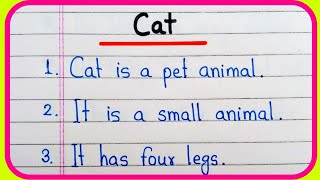 Cat
1. Cat is a pet animal.
2. It is a small animal.
3. It has four legs.